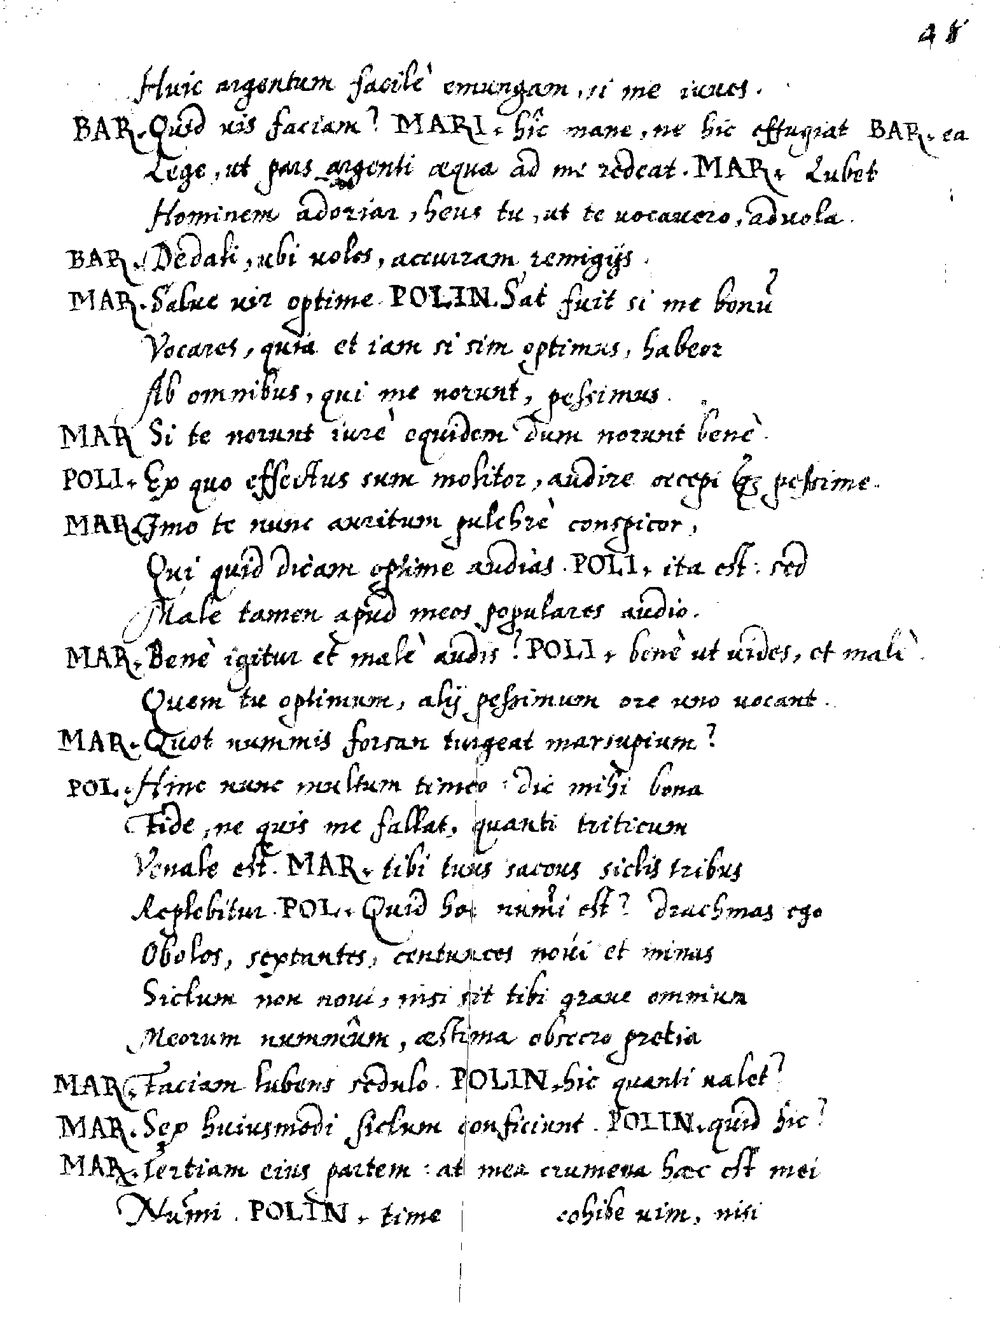 48
Huic argentum facilè emungam, si me iuues.
BAR. Quid uis faciam? MARI. hîc mane, ne hic effugiat BAR. ea
Lege, ut pars argenti æqua ad me redeat. MAR. Lubet
Hominem adoriar, heus tu, ut te uocauero, aduola.
BAR. Dedali, ubi uoles, accurram remigijs.
MAR. Salue uir optime. POLIN. Sat fuit si me bonũ
Vocares, quia et iam si sim optimus, habeor
Ab omnibus, qui me norunt, pessimus.
MAR. Si te norunt iurè equidem dum norunt benè.
POLI. Ex quo effectus sum molitor, audire occepi pessime.
MAR. Imo te nunc auritum pulchrè conspicor,
Qui quid dicam optime audias. POLI. ita est: sed
Male tamen apud meos populares audio.
MAR. Benè igitur et malè audis? POLI. benè ut uides, et malè.
Quem tu optimum, alij pessimum ore uno uocant.
MAR. Quot nummis forsan turgeat marsupium?
POL. Hinc nunc multum timeo: dic mihi bona
Fide, ne quis me fallat, quanti triticum
Venale est. MAR. tibi tuus saccus siclis tribus
Replebitur. POL. Quid hoc num̃i est? drachmas ego
Obolos, sextantes, centunces noui et minas
Siclum non noui, nisi sit tibi graue omnium
Meorum nummûm, æstima obsecro pretia
MAR. Faciam lubens sedulo. POLIN. hic quanti ualet?
MAR. Sex huiusmodi siclum conficiunt. POLIN. quid hic?
MAR. Tertiam eius partem: at mea crumena hæc est mei
Num̃i. POLIN. time cohibe uim, nisi